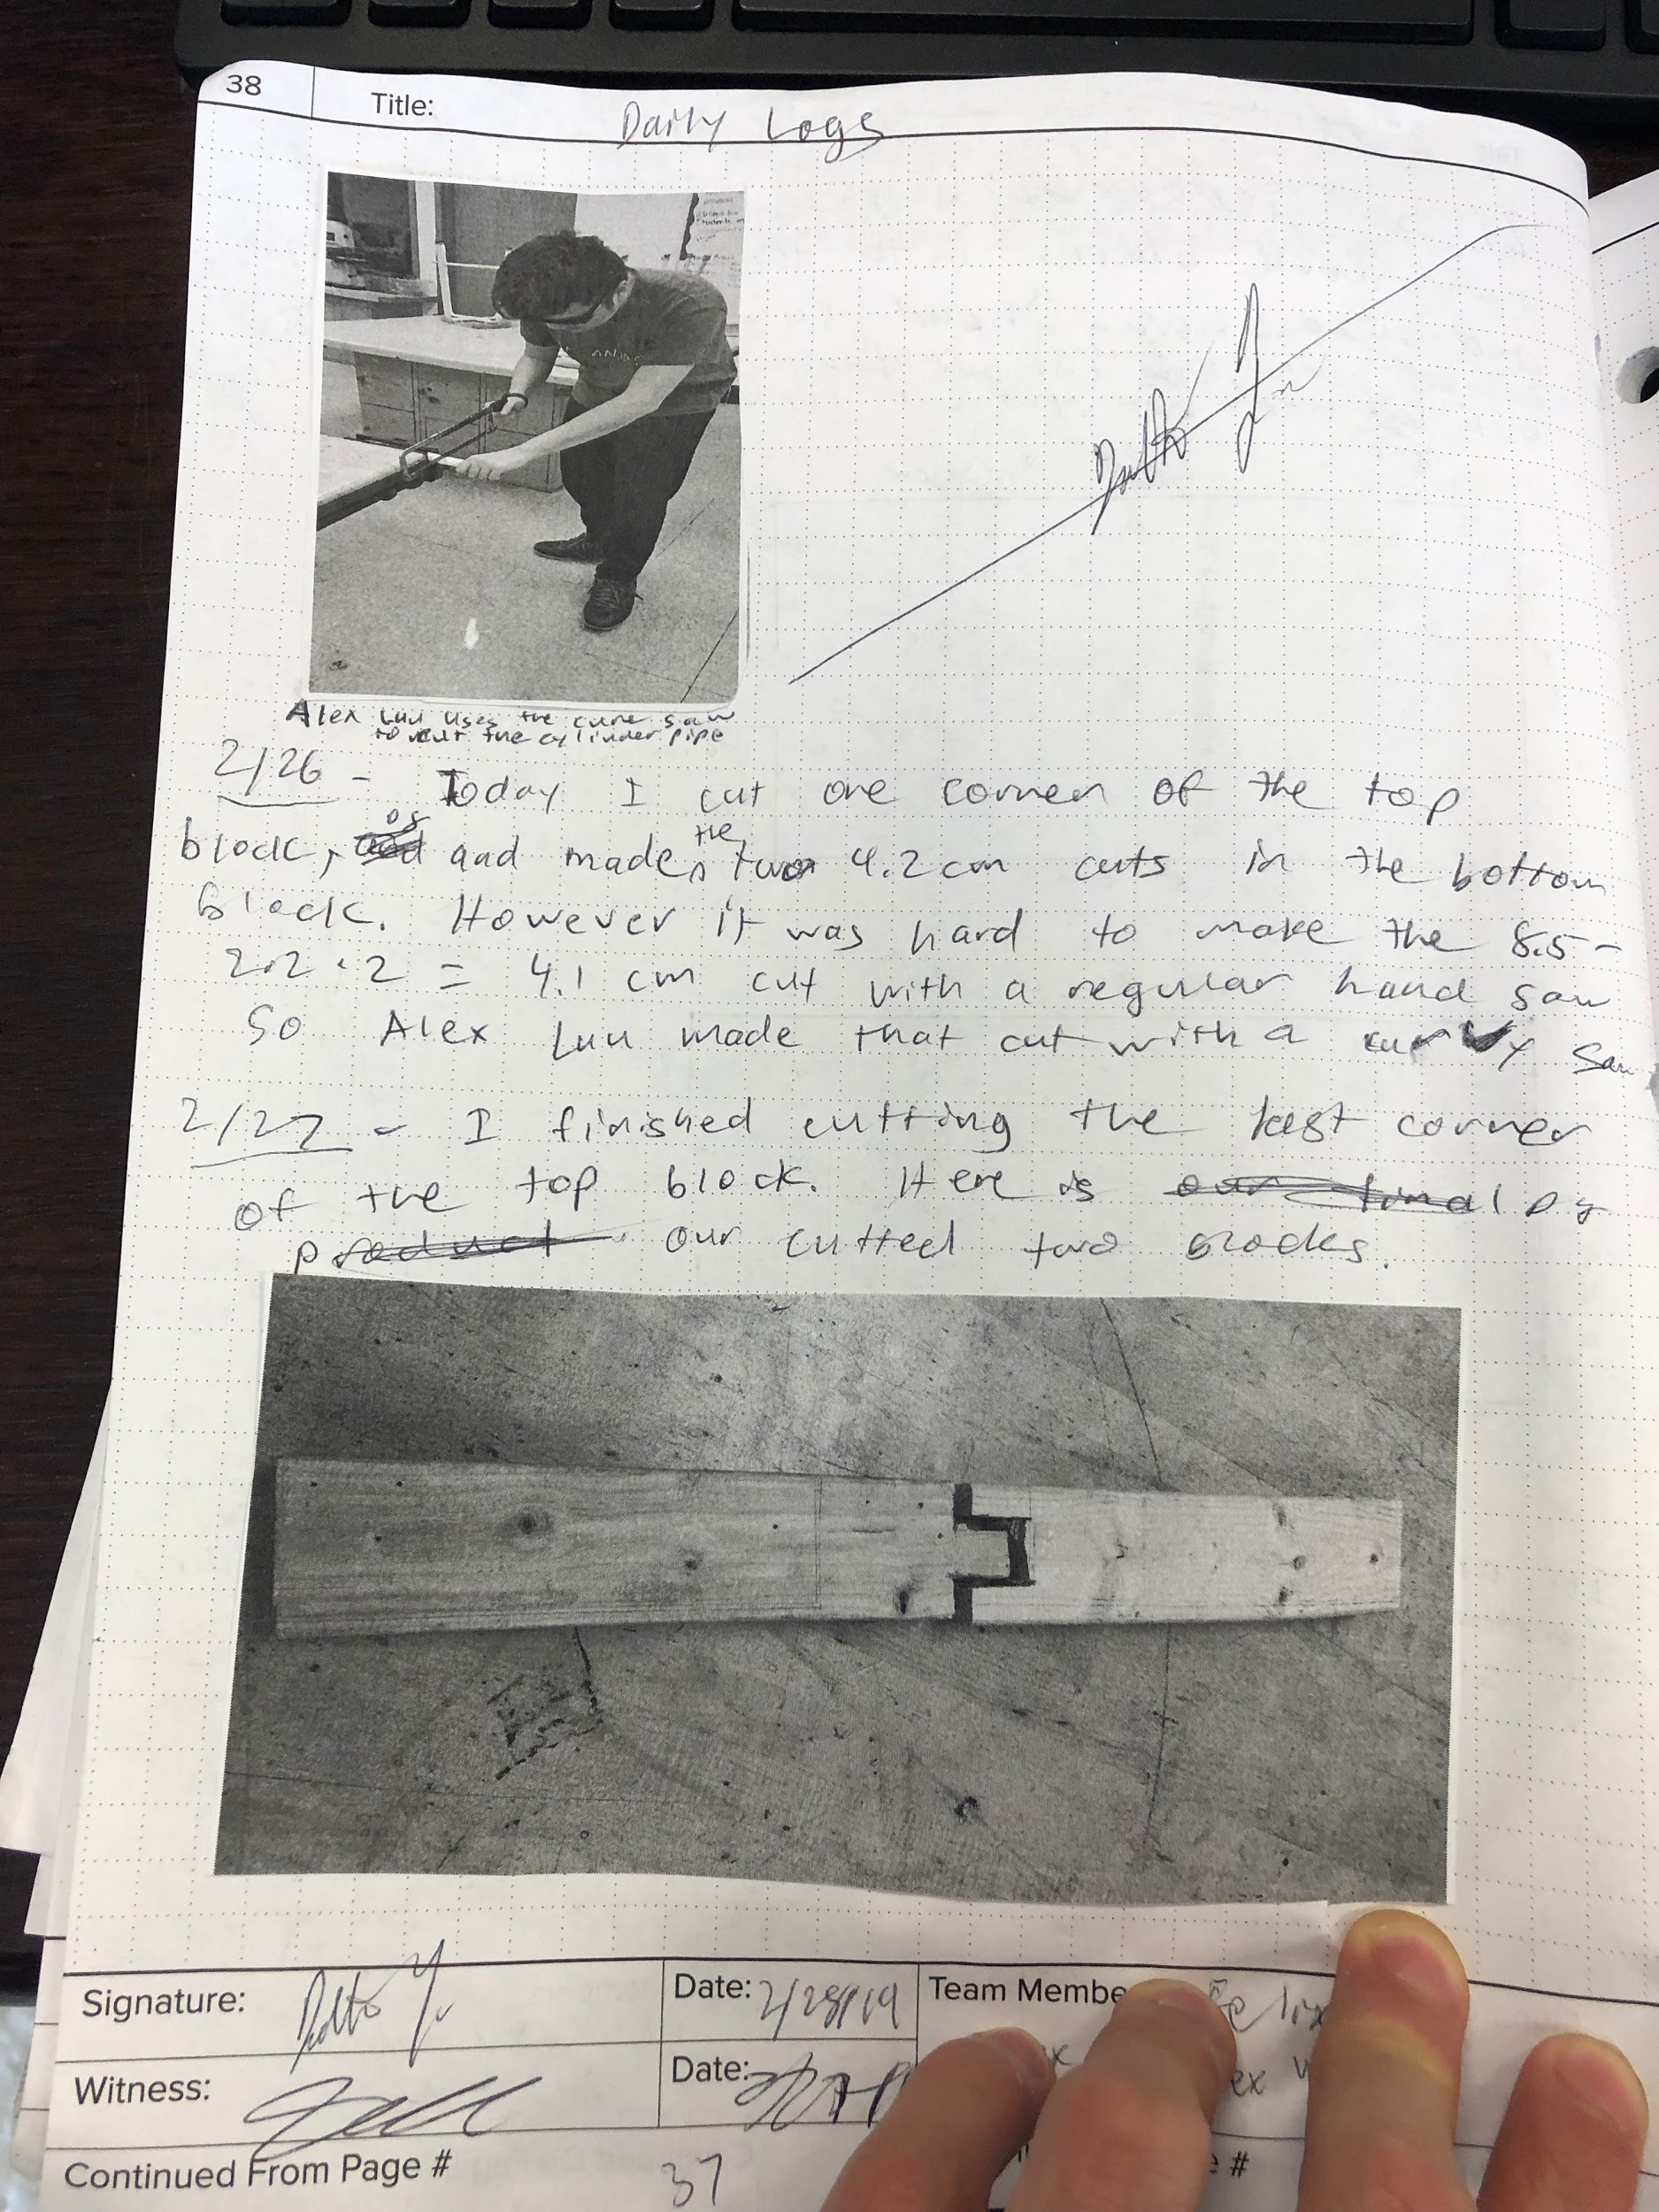 38
Title: Daily Logs
Alex Luu uses the curve saw
to cut the cylinder pipe
2/26 - Today I cut one corner of the top
block, and made the two 4.2 cm cuts in the bottom
block. However it was hard to make the 8.5-
2.2·2 = 4.1 cm cut with a regular hand saw
So Alex Luu made that cut with a curvy saw
2/27 - I finished cutting the last corner
of the top block. Here is our final
product our cutted two blocks.
Signature: Date: 2/28/19 Team Membe
Witness: Date:
Continued From Page # 37 #